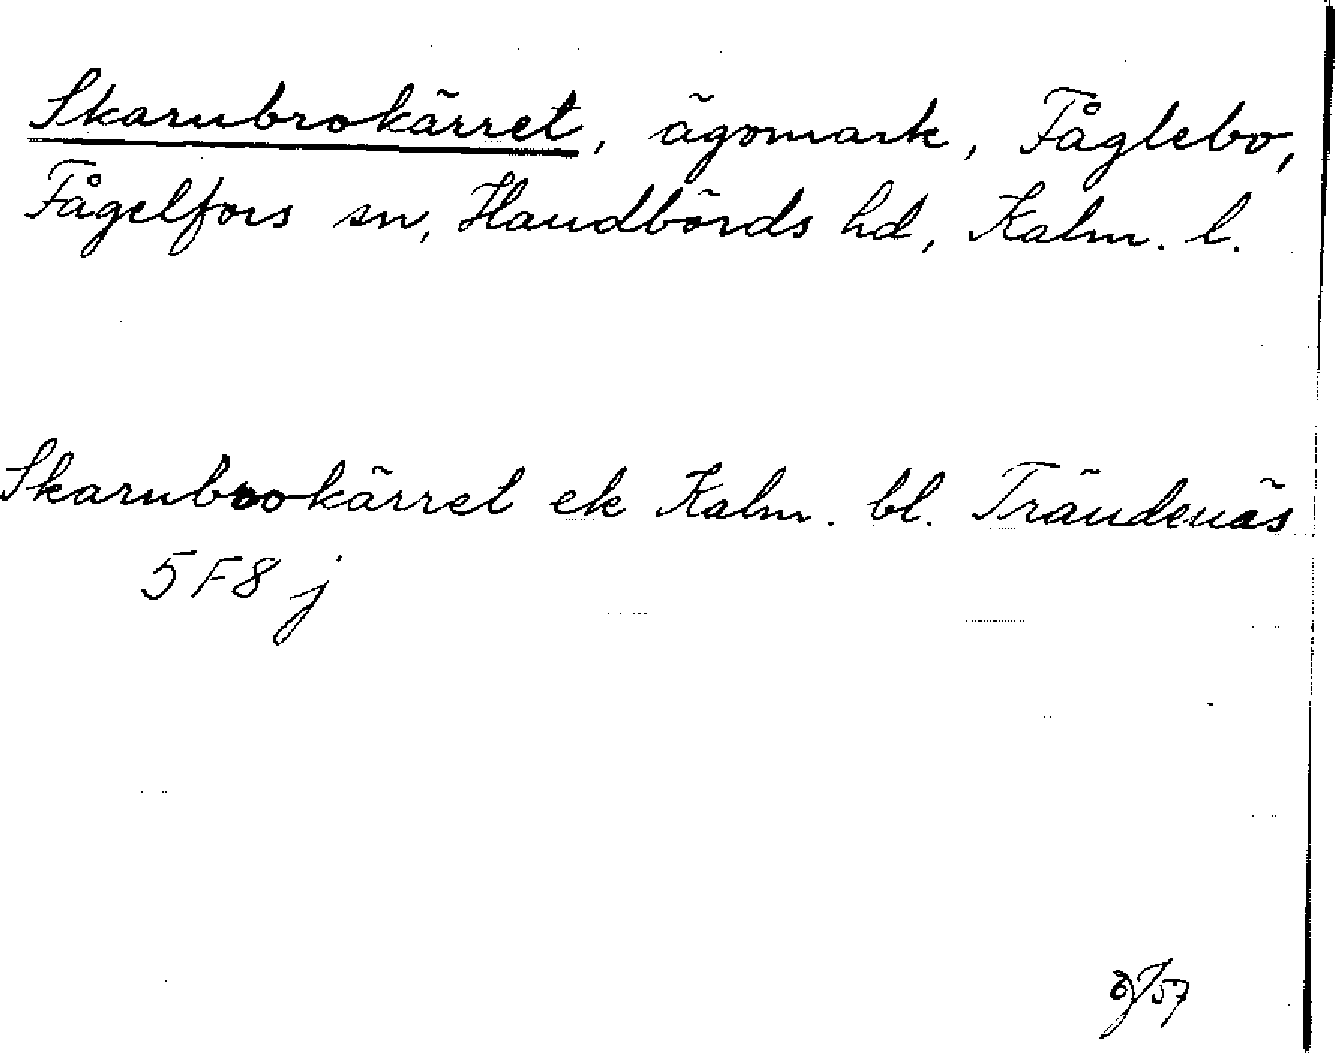 Skarubrokärret, ägomark, Fåglebo,
Fågelfors sn, Handbörds hd, Kalm. l.
Skarubrokärret ek Kalm. bl. Trändenäs
5F8j